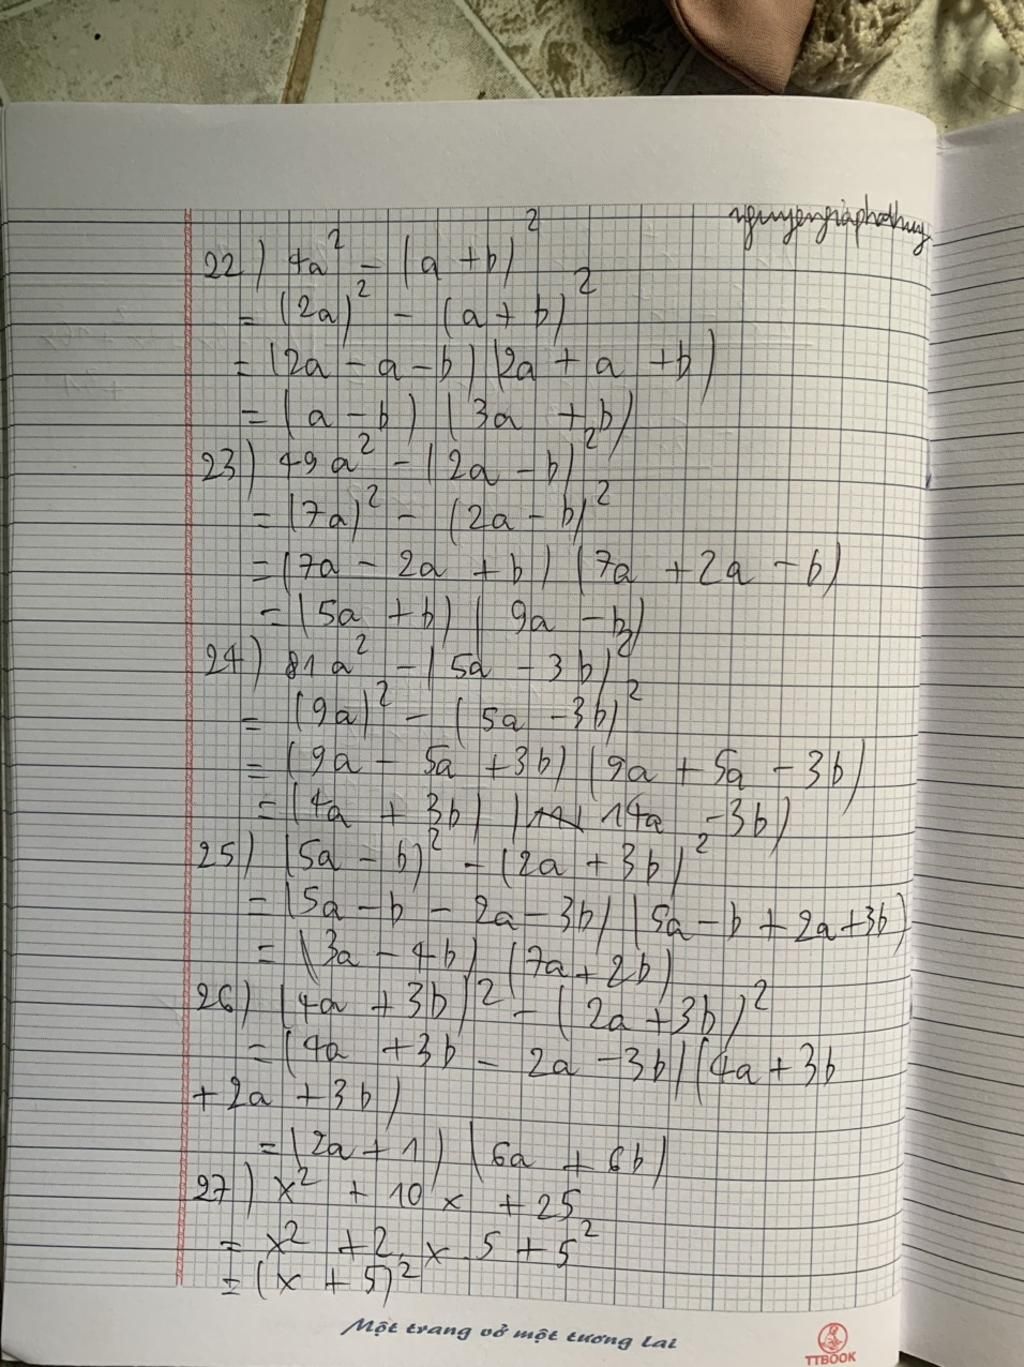 nguyengiaphathuy
22) 4a² - (a + b)²
= (2a)² - (a + b)²
= (2a - a - b) (2a + a + b)
= (a - b) (3a + b)
23) 49a² - (2a - b)²
= (7a)² - (2a - b)²
= (7a - 2a + b) (7a + 2a - b)
= (5a + b) (9a - b)
24) 81a² - (5a - 3b)²
= (9a)² - (5a - 3b)²
= (9a - 5a + 3b) (9a + 5a - 3b)
= (4a + 3b) (14a - 3b)
25) (5a - b)² - (2a + 3b)²
= (5a - b - 2a - 3b) (5a - b + 2a + 3b)
= (3a - 4b) (7a + 2b)
26) (4a + 3b)² - (2a + 3b)²
= (4a + 3b - 2a - 3b) (4a + 3b
+ 2a + 3b)
= (2a + 1) (6a + 6b)
27) x² + 10x + 25
= x² + 2.x.5 + 5²
= (x + 5)²
Một trang vở một tương lai
TTBOOK